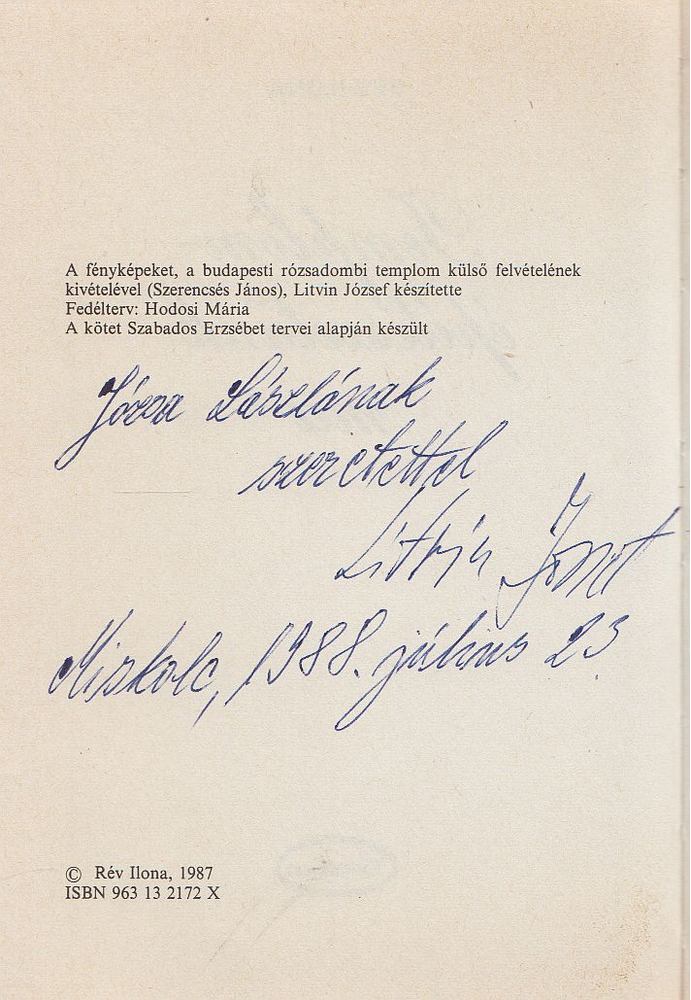 A fényképeket, a budapesti rózsadombi templom külső felvételének
kivételével (Szerencsés János), Litvin József készítette
Fedélterv: Hodosi Mária
A kötet Szabados Erzsébet tervei alapján készült
Józsa Lászlónak
szeretettel
Litvin József
Miskolc, 1988. július 23.
© Rév Ilona, 1987
ISBN 963 13 2172 X